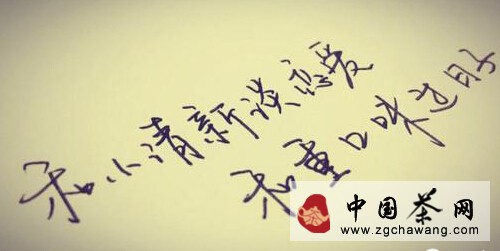 和小清新谈恋爱
和重口味过日子
中国茶网
www.zgchawang.com